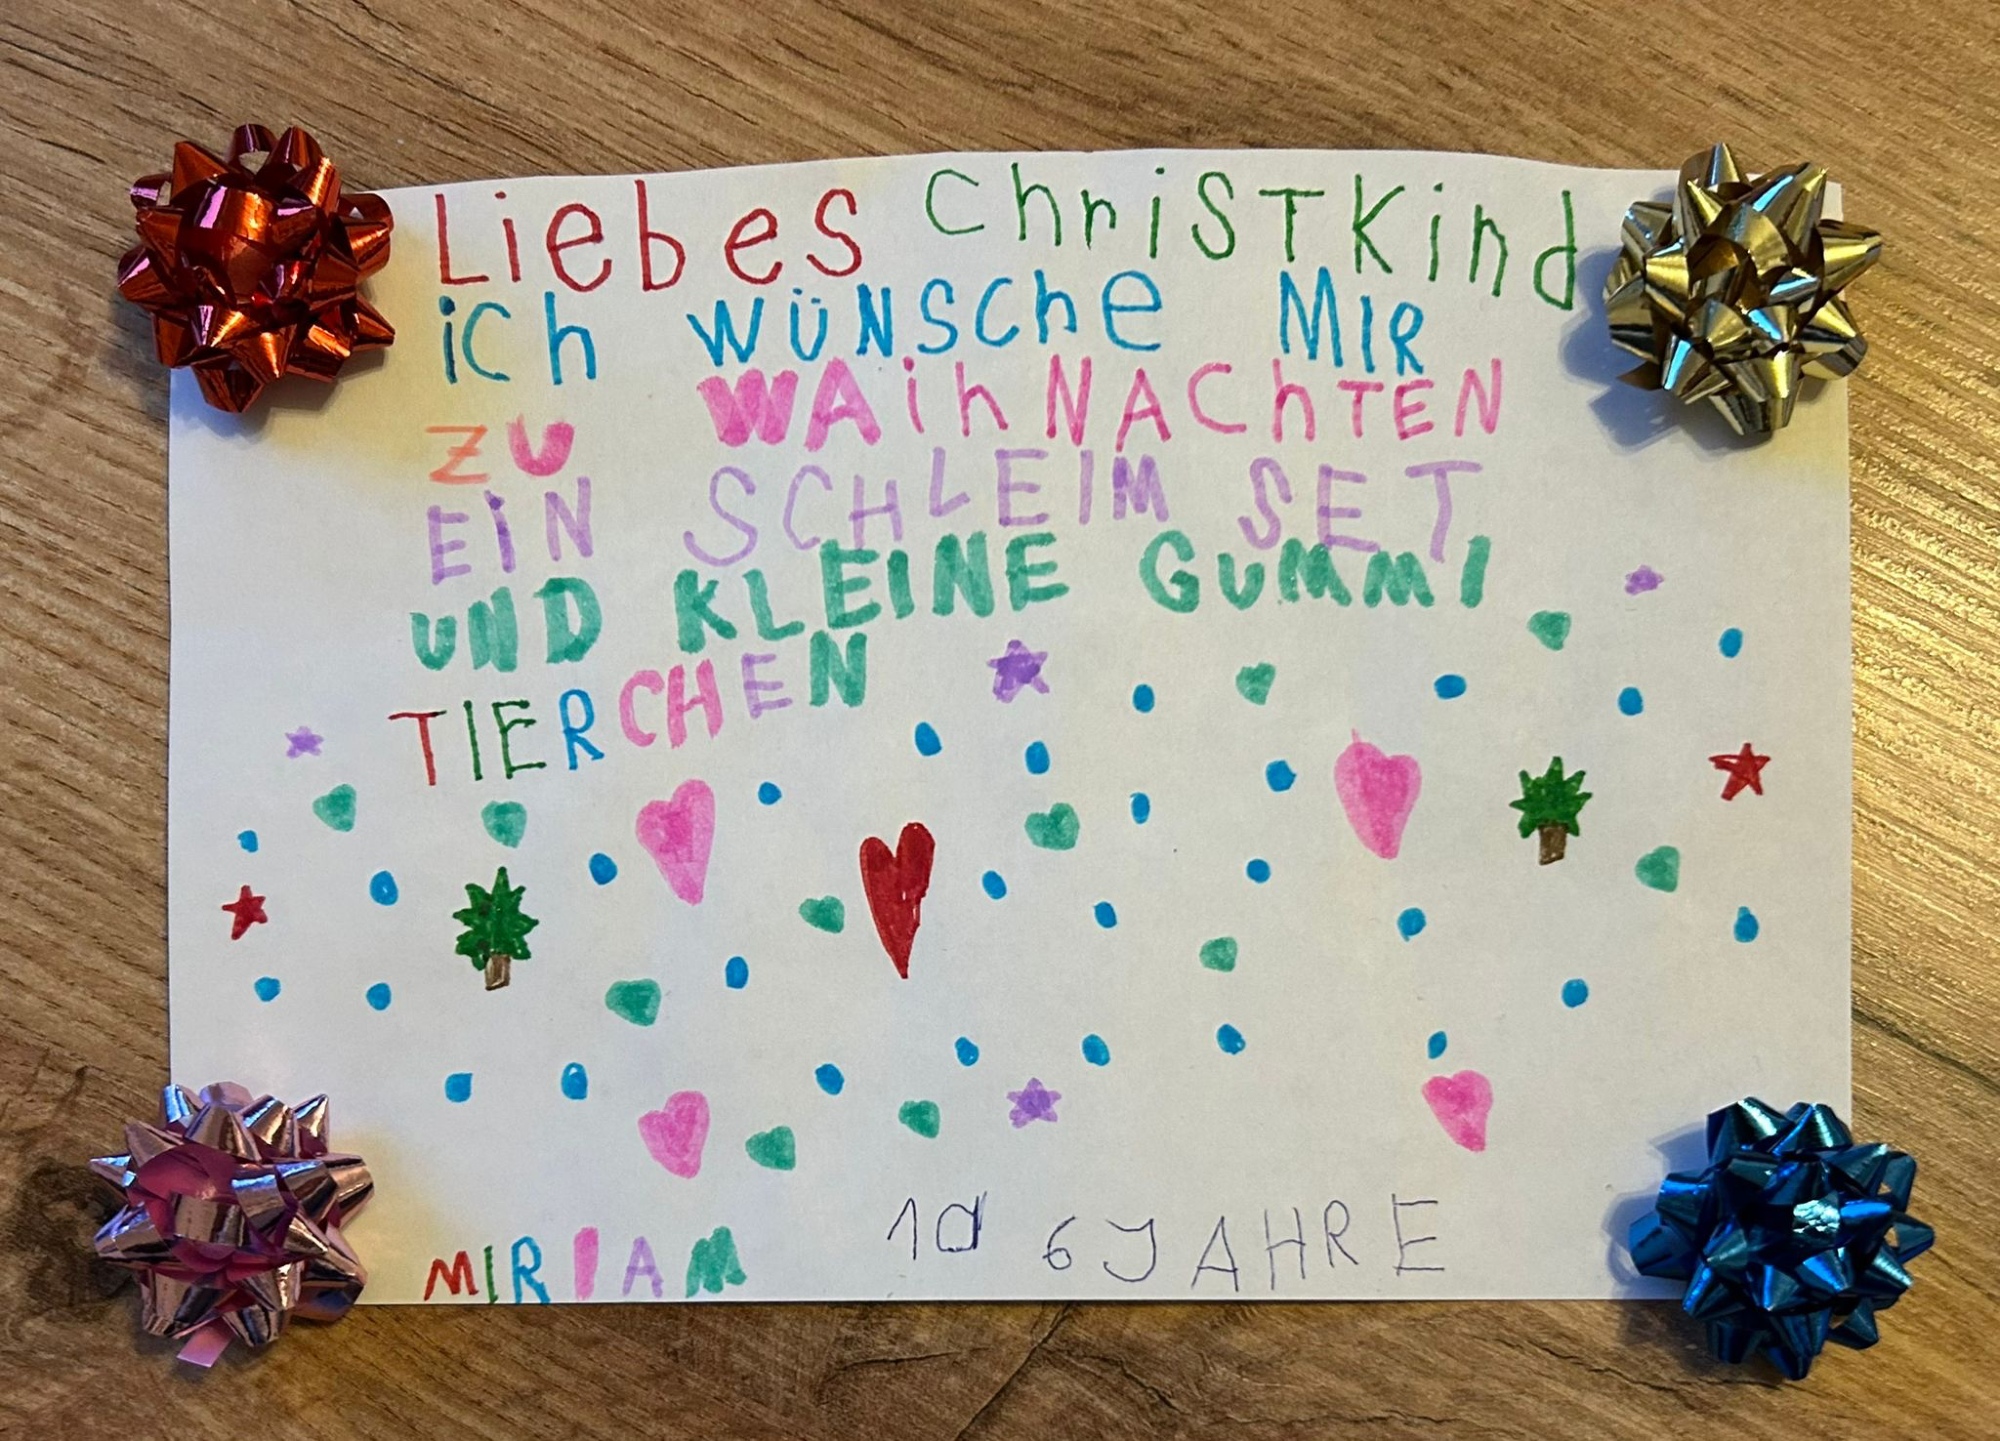 Liebes ChriSTKind
iCh WÜNSChe MIR
ZU WAihNAChTEN
EiN SCHLEIM SET
UND KLEINE GUMMI
TIERCHEN
MIRIAM 1d 6 JAHRE